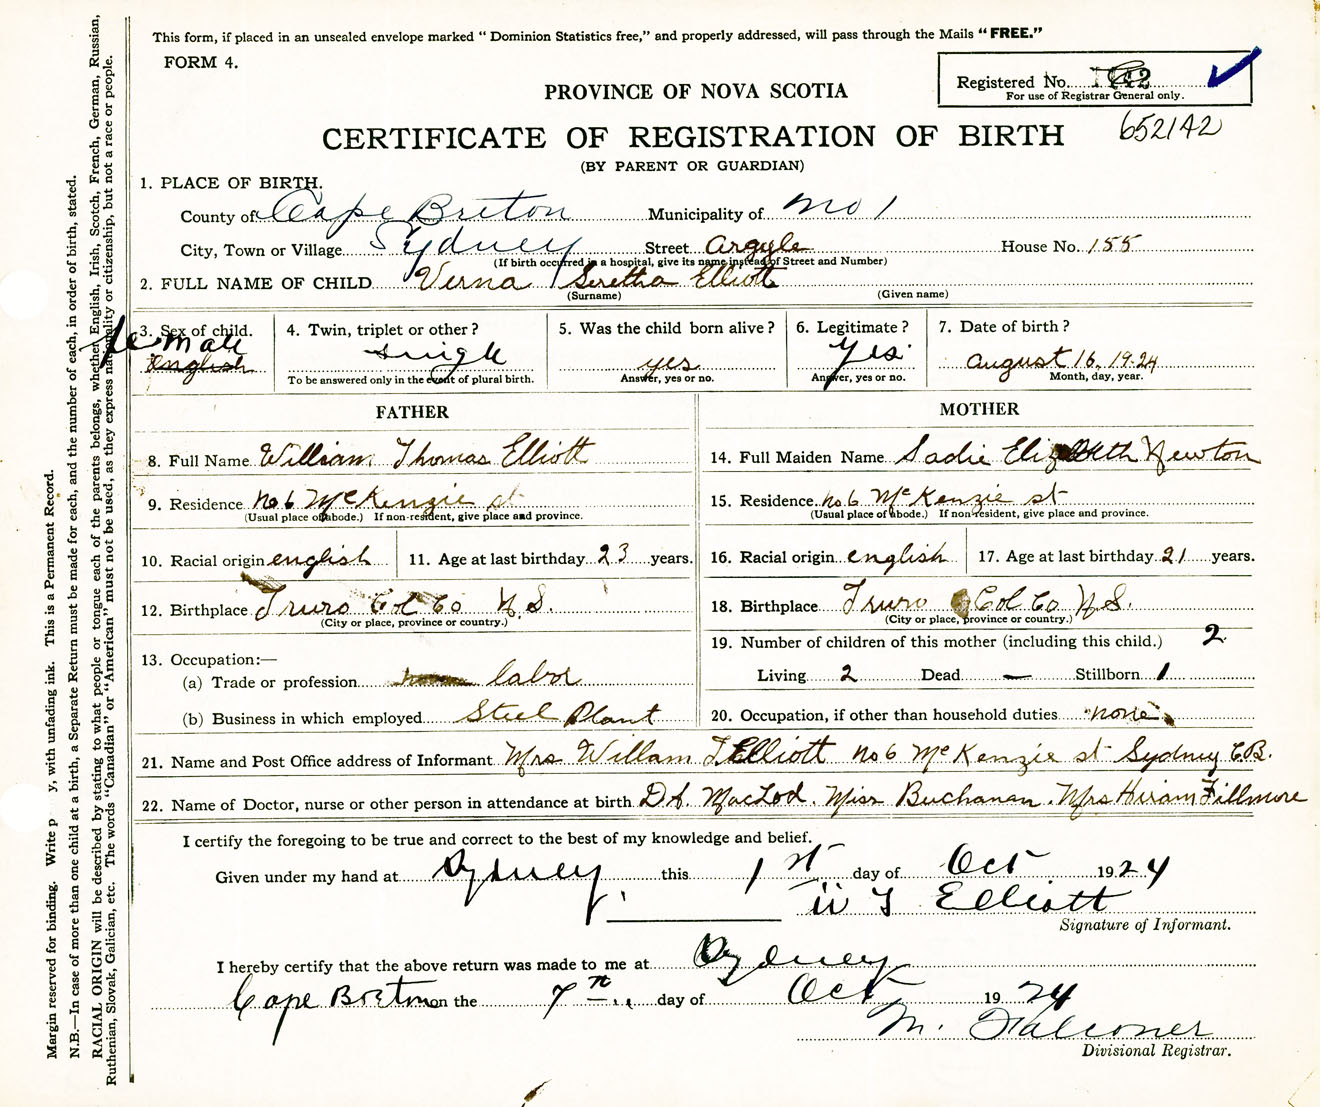 This form, if placed in an unsealed envelope marked "Dominion Statistics free," and properly addressed, will pass through the Mails "FREE."
FORM 4.
Registered No.
For use of Registrar General only.
PROVINCE OF NOVA SCOTIA
652142
CERTIFICATE OF REGISTRATION OF BIRTH
(BY PARENT OR GUARDIAN)
1. PLACE OF BIRTH.
County of Cape Breton Municipality of No 1
City, Town or Village Sydney Street Argyle House No. 155
(If birth occurred in a hospital, give its name instead of Street and Number)
2. FULL NAME OF CHILD Verna Seretha Elliott
(Surname) (Given name)
3. Sex of child. 4. Twin, triplet or other? 5. Was the child born alive? 6. Legitimate? 7. Date of birth?
female single yes Yes August 16, 1924
english
To be answered only in the event of plural birth. Answer, yes or no. Answer, yes or no. Month, day, year.
FATHER MOTHER
8. Full Name William Thomas Elliott 14. Full Maiden Name Sadie Elizabeth Newton
9. Residence No 6 McKenzie st 15. Residence No 6 McKenzie st
(Usual place of abode.) If non-resident, give place and province. (Usual place of abode.) If non-resident, give place and province.
10. Racial origin english 11. Age at last birthday 23 years. 16. Racial origin english 17. Age at last birthday 21 years.
12. Birthplace Truro Col Co N.S. 18. Birthplace Truro Col Co N.S.
(City or place, province or country.) (City or place, province or country.)
13. Occupation:— 19. Number of children of this mother (including this child.) 2
(a) Trade or profession labor Living 2 Dead — Stillborn 1
(b) Business in which employed Steel Plant 20. Occupation, if other than household duties none
21. Name and Post Office address of Informant Mrs Willam T Elliott No 6 McKenzie st Sydney C.B.
22. Name of Doctor, nurse or other person in attendance at birth Dr. MacLod. Miss Buchanan. Mrs Hiram Fillmore
I certify the foregoing to be true and correct to the best of my knowledge and belief.
Given under my hand at Sydney this 1st day of Oct 1924
W T Elliott
Signature of Informant.
I hereby certify that the above return was made to me at Sydney
Cape Breton on the 7th day of Oct 1924
M. Falconer
Divisional Registrar.
Margin reserved for binding. Write p y, with unfading ink. This is a Permanent Record.
N.B.—In case of more than one child at a birth, a Separate Return must be made for each, and the number of each, in order of birth, stated.
RACIAL ORIGIN will be described by stating to what people or tongue each of the parents belongs, whether English, Irish, Scotch, French, German, Russian,
Ruthenian, Slovak, Galician, etc. The words "Canadian" or "American" must not be used, as they express nationality or citizenship, but not a race or people.